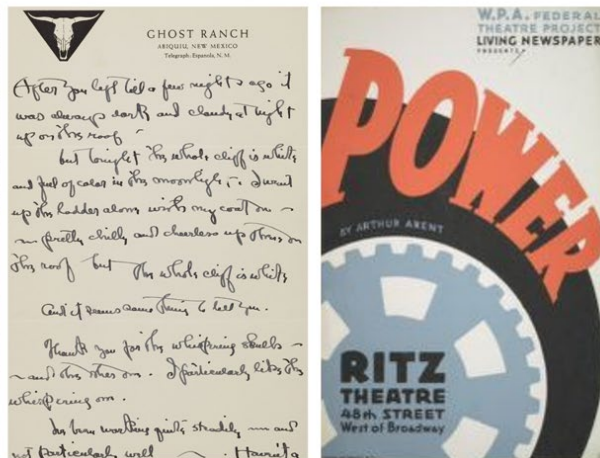 GHOST RANCH
ABIQUIU, NEW MEXICO
Telegraph, Espanola, N. M.
After you left till a few nights ago it
was always dark and cloudy at night
up on the roof
but tonight the whole cliff is white
and full of color in the moonlight. I went
up the ladder alone with my coat on
pretty chilly and cheerless up there on
the roof but the whole cliff is white
and it seems something to tell you.
Thank you for the whispering shells
and the other one. I particularly like the
whispering one.
been working quite steadily and
not particularly well
W.P.A. FEDERAL
THEATRE PROJECT
LIVING NEWSPAPER
PRESENTS
POWER
BY ARTHUR ARENT
RITZ
THEATRE
48th STREET
West of Broadway